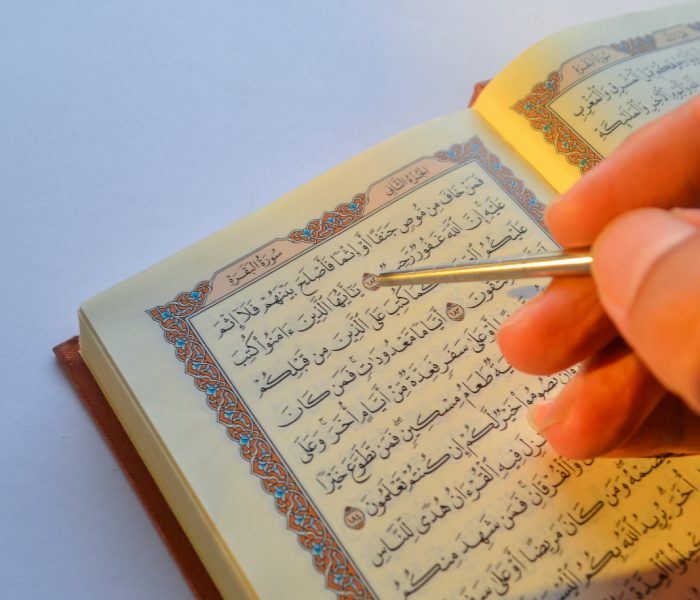 الجزء الثاني
سورة البقرة
فَمَنْ خَافَ مِن مُّوصٍ جَنَفًا أَوْ إِثْمًا فَأَصْلَحَ بَيْنَهُمْ فَلَآ إِثْمَ
عَلَيْهِ إِنَّ ٱللَّهَ غَفُورٌ رَّحِيمٌ ١٨٢ يَٰٓأَيُّهَا ٱلَّذِينَ ءَامَنُوا۟ كُتِبَ
عَلَيْكُمُ كَمَا كُتِبَ عَلَى ٱلَّذِينَ مِن قَبْلِكُمْ
تَتَّقُونَ ١٨٣ أَيَّامًا مَّعْدُودَٰتٍ فَمَن كَانَ
أَوْ عَلَىٰ سَفَرٍ فَعِدَّةٌ مِّنْ أَيَّامٍ أُخَرَ وَعَلَى
طَعَامُ مِسْكِينٍ فَمَن تَطَوَّعَ خَيْرًا
وَأَن تَصُومُوا۟ خَيْرٌ لَّكُمْ إِن كُنتُمْ تَعْلَمُونَ ١٨٤
أُنزِلَ فِيهِ ٱلْقُرْءَانُ هُدًى لِّلنَّاسِ
وَٱلْفُرْقَانِ فَمَن شَهِدَ مِنكُمُ
وَمَن كَانَ مَرِيضًا أَوْ عَلَىٰ سَفَرٍ
أُخَرَ يُرِيدُ ٱللَّهُ بِكُمُ
ٱلْعِدَّةَ
سورة البقرة
قِبَلَ ٱلْمَشْرِقِ وَٱلْمَغْرِبِ
ٱلْءَاخِرِ وَٱلْمَلَٰٓئِكَةِ